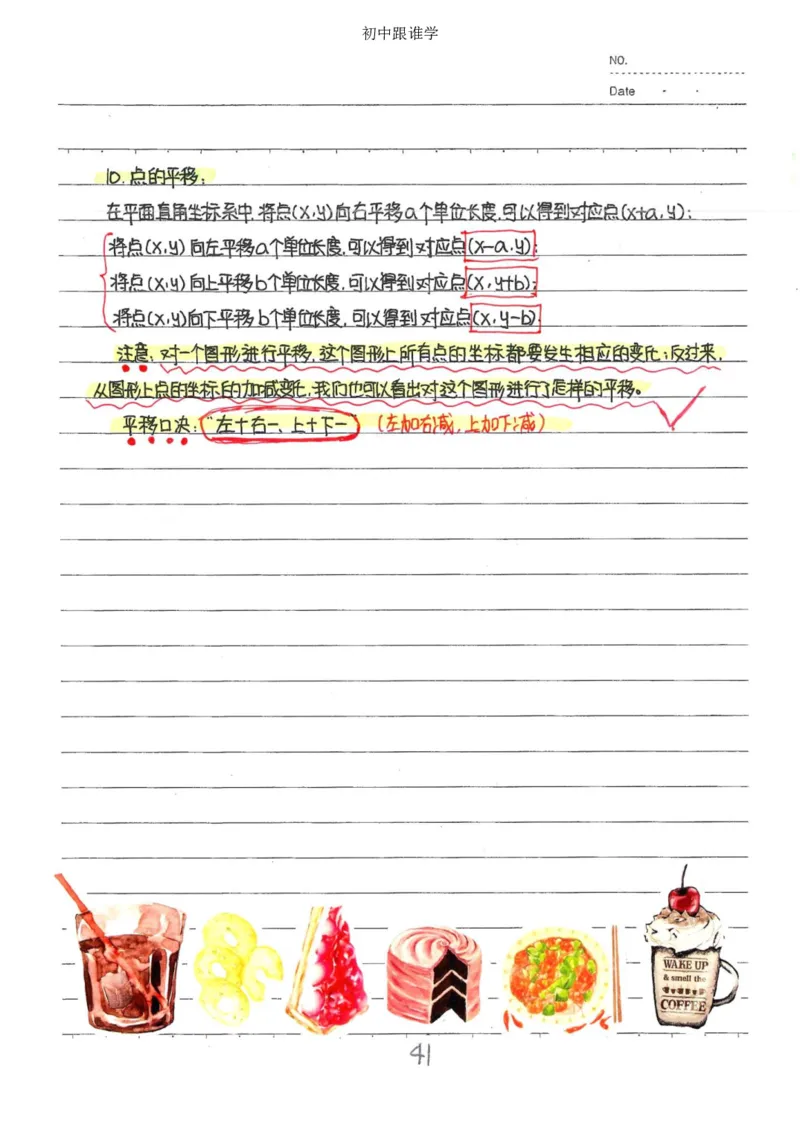 初中跟谁学
NO.
Date - ·
10. 点的平移:
在平面直角坐标系中,将点(x,y)向右平移a个单位长度,可以得到对应点(x+a,y);
将点(x,y)向左平移a个单位长度,可以得到对应点(x-a,y);
将点(x,y)向上平移b个单位长度,可以得到对应点(x,y+b);
将点(x,y)向下平移b个单位长度,可以得到对应点(x,y-b).
注意:对一个图形进行平移,这个图形上所有点的坐标都要发生相应的变化;反过来,
从图形上点的坐标的加减变化,我们也可以看出对这个图形进行了怎样的平移。
平移口决:"左+右-、上+下-" (左加右减,上加下减)
WAKE UP
& smell the
COFFEE
41